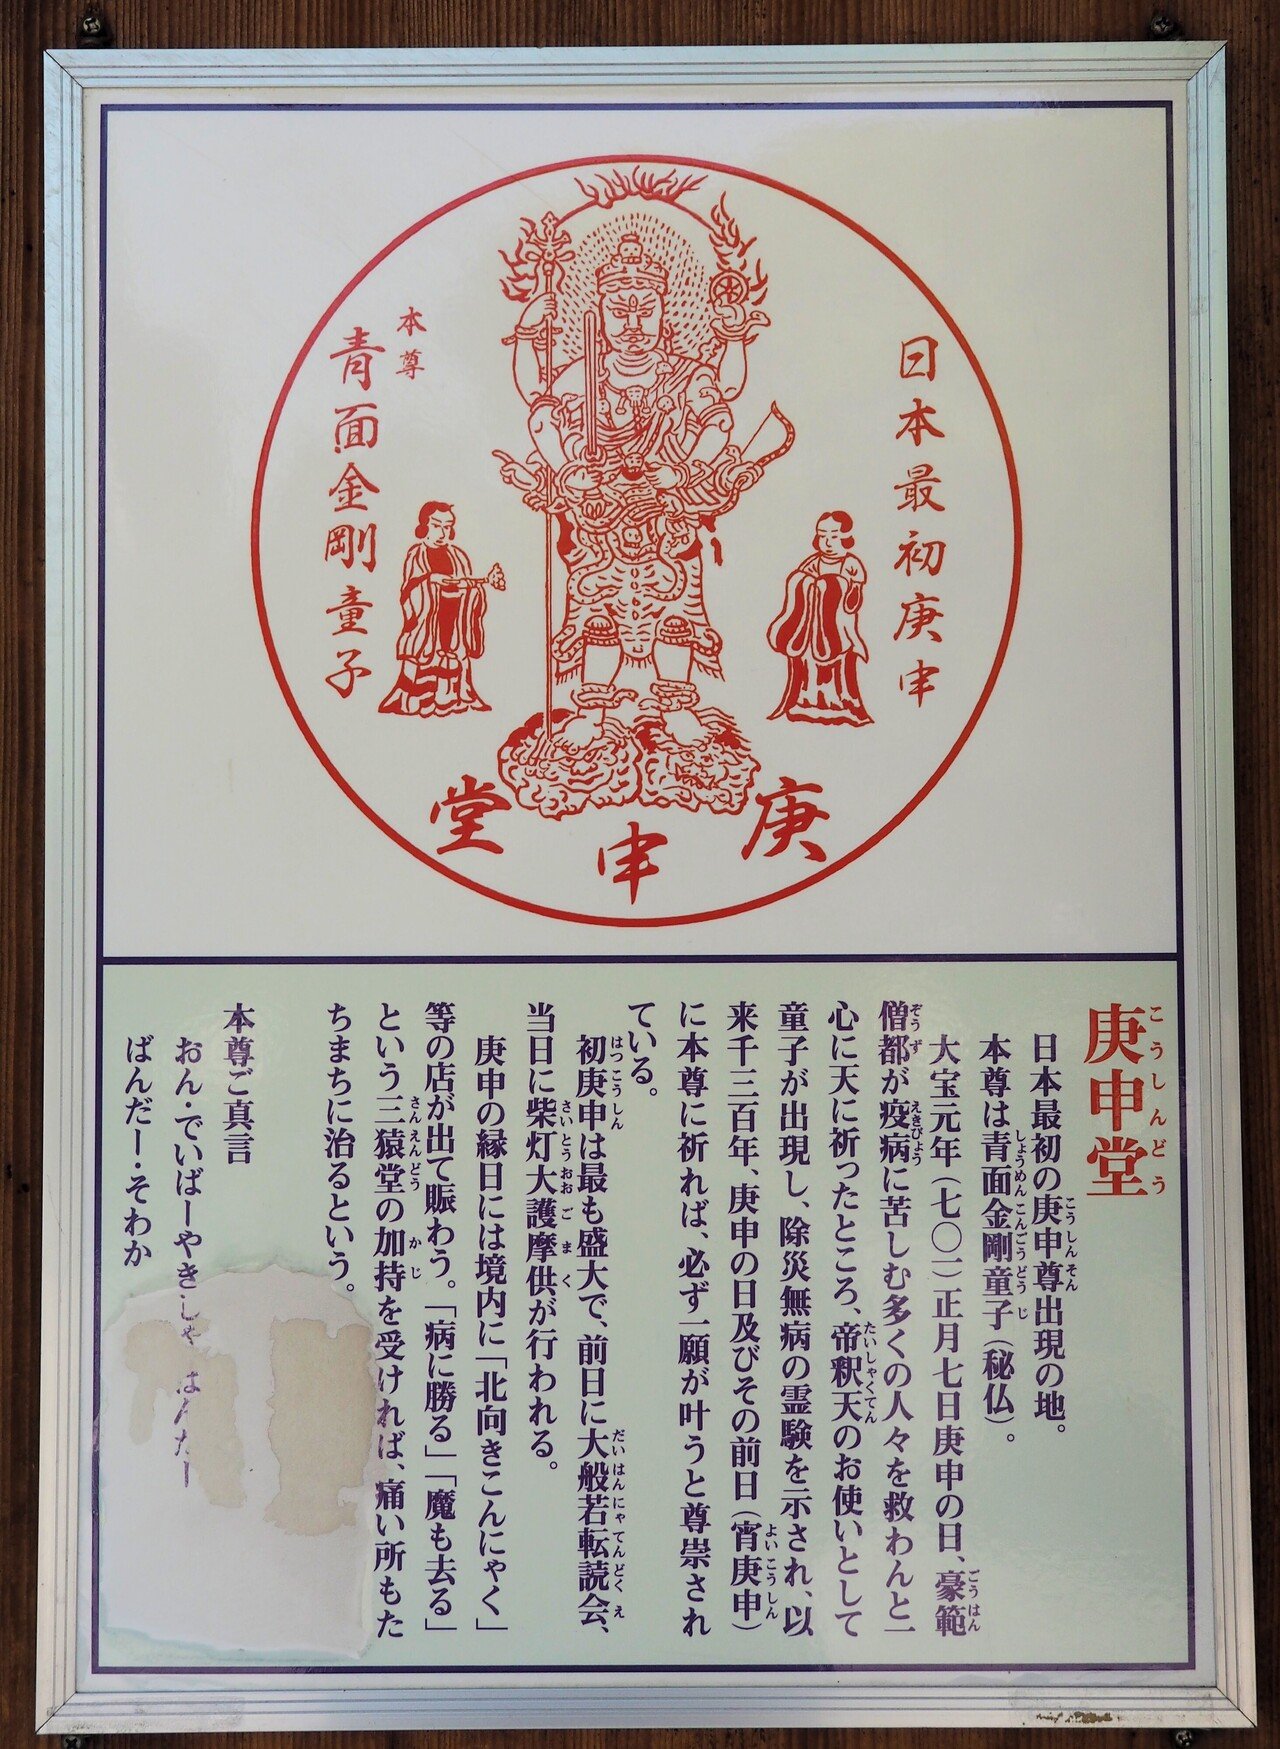 日本最初庚申
本尊
青面金剛童子
庚申堂
庚申堂
こうしんどう
日本最初の庚申尊出現の地。
こうしんそん
本尊は青面金剛童子（秘仏）。
しょうめんこんごうどうじ
大宝元年（七〇一）正月七日庚申の日、豪範
ごうはん
僧都が疫病に苦しむ多くの人々を救わんと一
ぞうず えきびょう
心に天に祈ったところ、帝釈天のお使いとして
たいしゃくてん
童子が出現し、除災無病の霊験を示され、以
来千三百年、庚申の日及びその前日（宵庚申）
よいこうしん
に本尊に祈れば、必ず一願が叶うと尊崇され
ている。
初庚申は最も盛大で、前日に大般若転読会、
はつこうしん だいはんにゃてんどくえ
当日に柴灯大護摩供が行われる。
さいとうおおごまく
庚申の縁日には境内に「北向きこんにゃく」
等の店が出て賑わう。「病に勝る」「魔も去る」
という三猿堂の加持を受ければ、痛い所もた
さんえんどう かじ
ちまちに治るという。
本尊ご真言
おん・でいばーやきしゃ はんたー
ばんだー・そわか